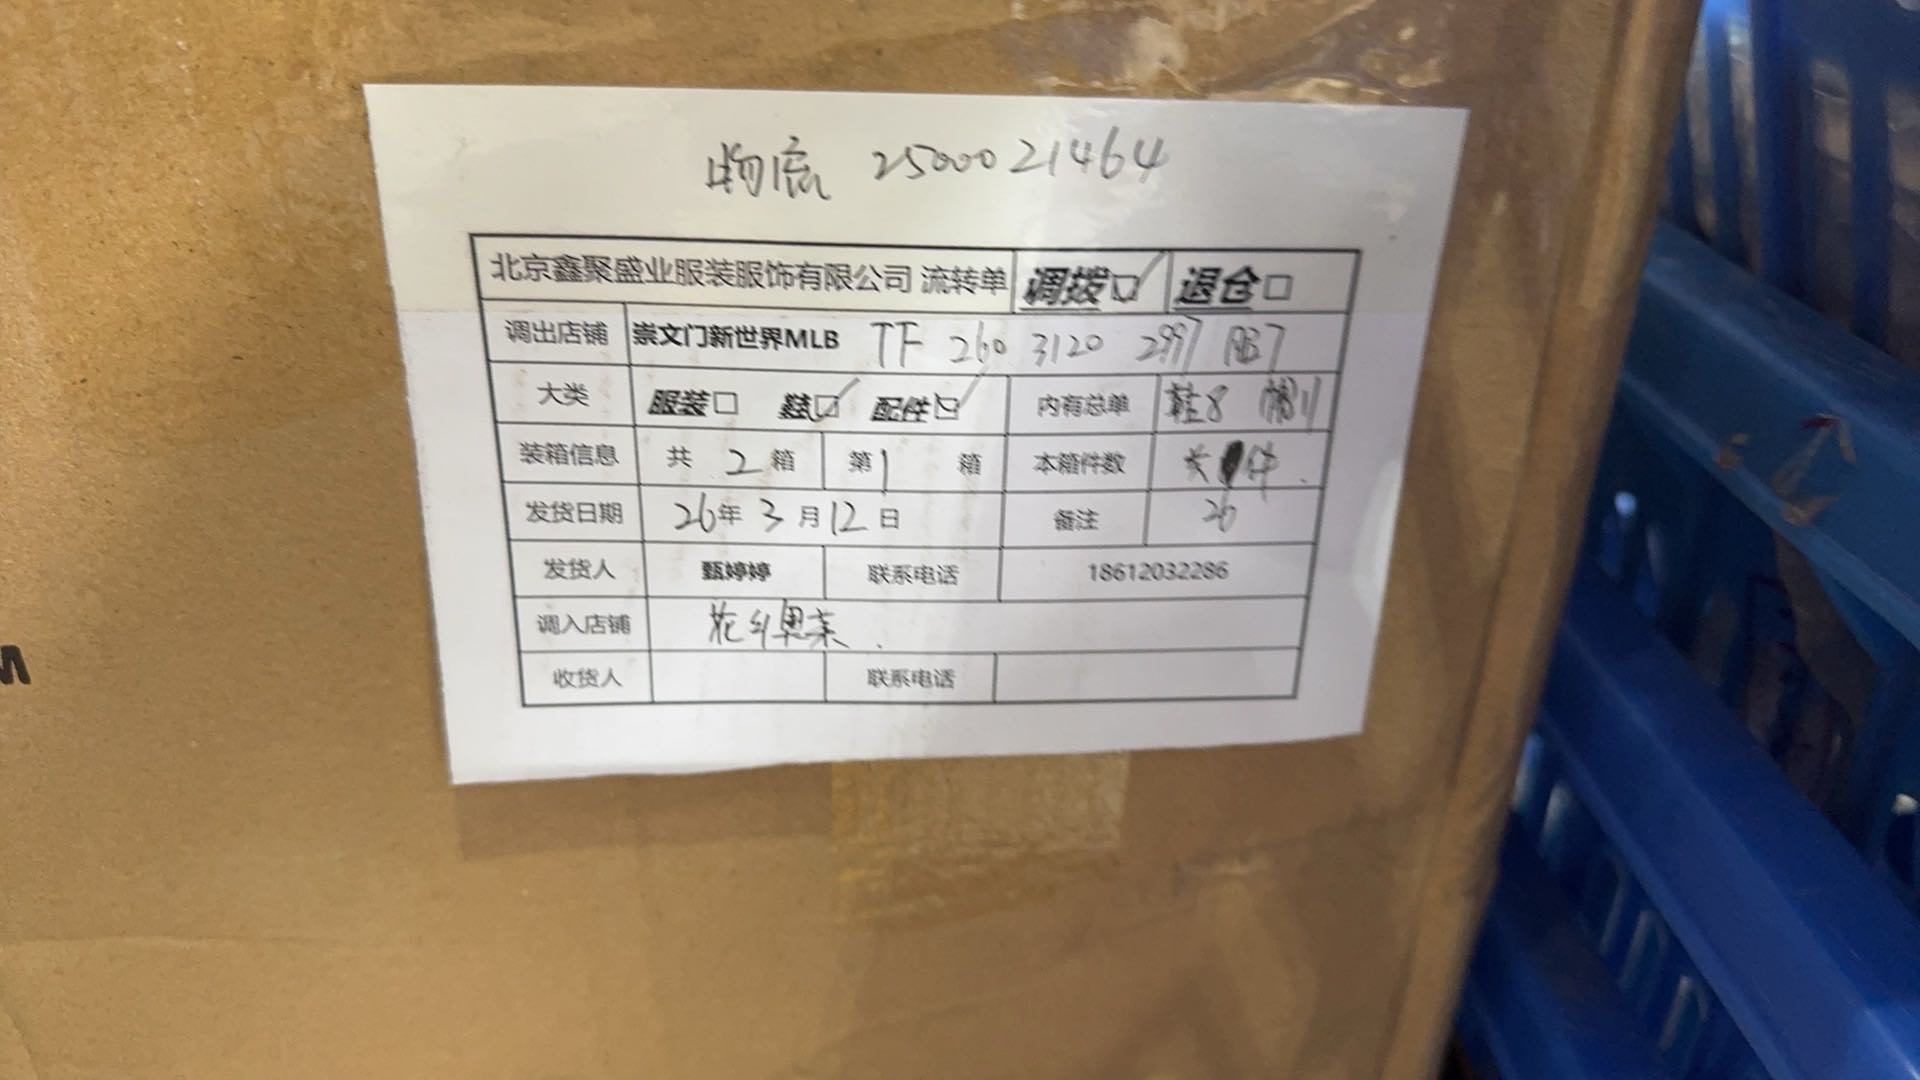 物流 2500021464
北京鑫聚盛业服装服饰有限公司 流转单 调拨☑ 退仓□
调出店铺 崇文门新世界MLB TF 260 3120 2997
大类 服装□ 鞋☑ 配件☑ 内有总单 鞋8 帽11
装箱信息 共 2 箱 第1 箱 本箱件数 共 件
发货日期 26年 3月12日 备注 26
发货人 甄婷婷 联系电话 18612032286
调入店铺 花乡奥莱
收货人 联系电话
M